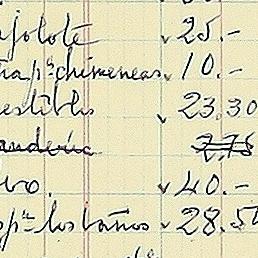 ajolote 25.-
ña pª chimeneas 10.-
estibls 23,30
andería 2,75
vo. 40.-
pª los baños 28.5